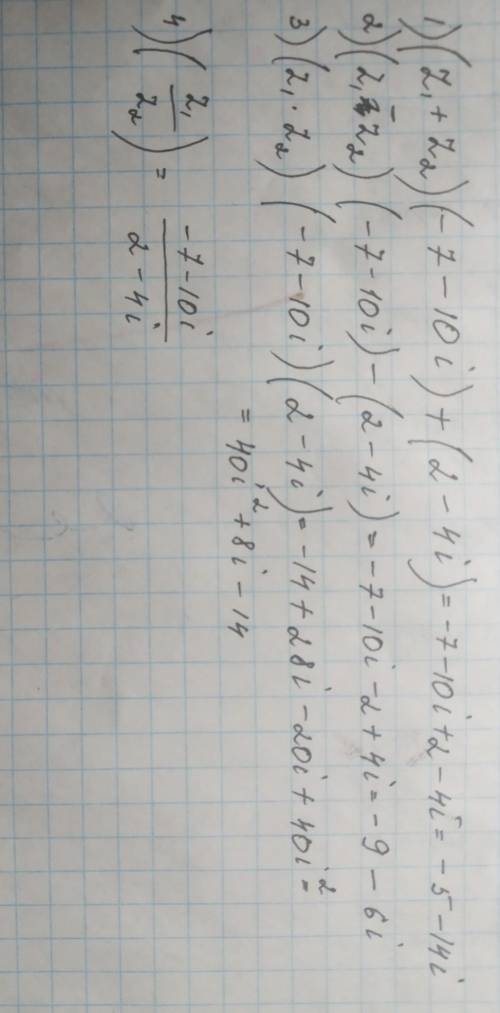 1) (z₁ + z₂) (-7 - 10i) + (2 - 4i) = -7 - 10i + 2 - 4i = -5 - 14i
2) (z₁ - z₂) (-7 - 10i) - (2 - 4i) = -7 - 10i - 2 + 4i = -9 - 6i
3) (z₁ · z₂) (-7 - 10i) (2 - 4i) = -14 + 28i - 20i + 40i² =
= 40i² + 8i - 14
4) (z₁/z₂) = (-7 - 10i)/(2 - 4i)